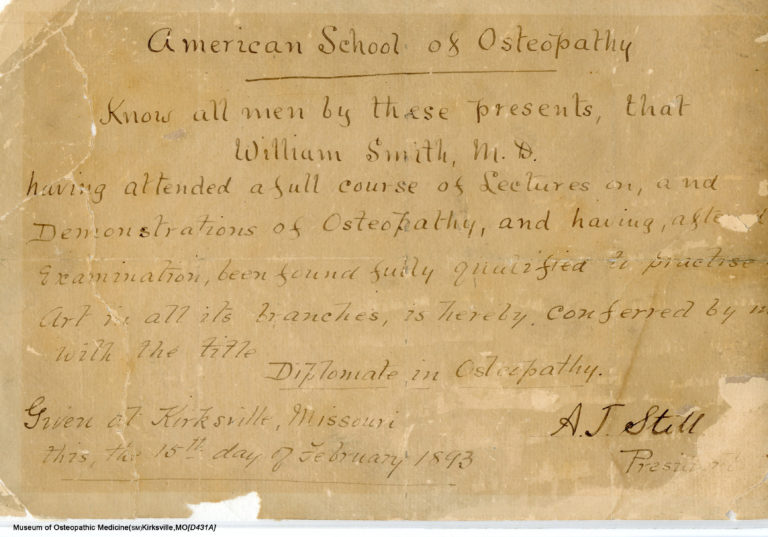 American School of Osteopathy
Know all men by these presents, that
William Smith, M.D.
having attended a full course of Lectures on, and
Demonstrations of Osteopathy, and having, after
Examination, been found fully qualified to practise
Art in all its branches, is hereby conferred by
with the title
Diplomate in Osteopathy.
Given at Kirksville, Missouri
this, the 15th day of February 1893
A.T. Still
President
Museum of Osteopathic Medicine(SM)Kirksville,MO[D431A]